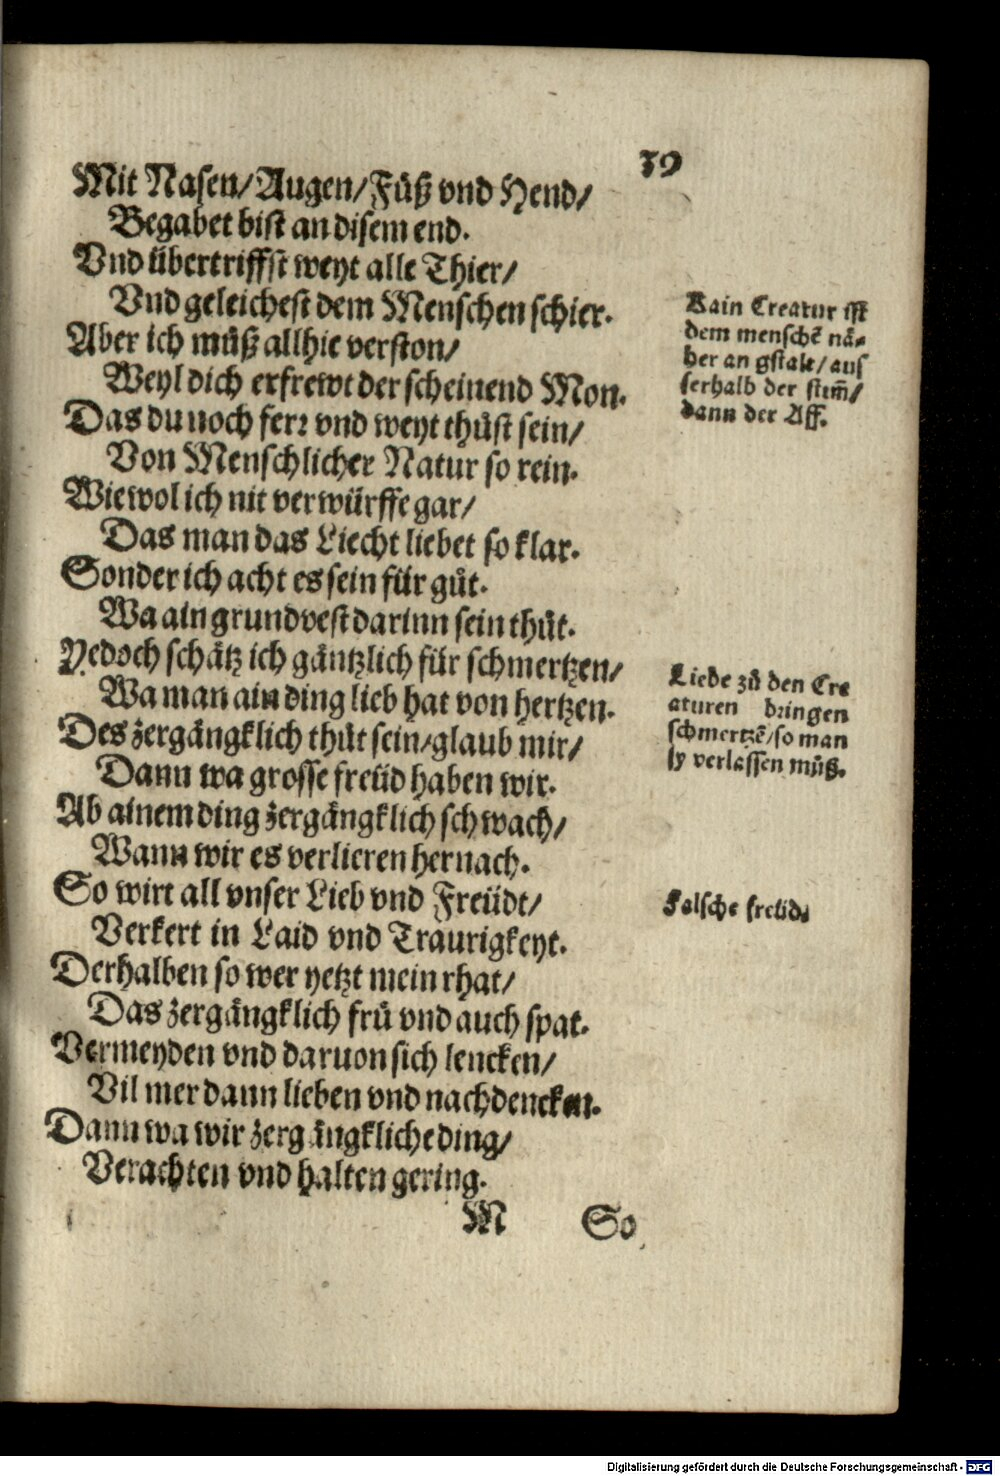 39
Mit Nasen/Augen/Füß vnd Hend/
Begabet bist an disem end.
Vnd übertriffst weyt alle Thier/
Vnd geleichest dem Menschen schier.
Aber ich müß allhie verston/
Weyl dich erfrewt der scheinend Mon.
Das du noch ferr vnd weyt thůst sein/
Von Menschlicher Natur so rein.
Wiewol ich nit verwürffe gar/
Das man das Liecht liebet so klar.
Sonder ich acht es sein für gůt.
Wa ain grundvest darinn sein thůt.
Yedoch schätz ich gäntzlich für schmertzen/
Wa man ain ding lieb hat von hertzen.
Des zergängklich thůt sein/glaub mir/
Dann wa grosse freüd haben wir.
Ab ainem ding zergängklich schwach/
Wann wir es verlieren hernach.
So wirt all vnser Lieb vnd Freüdt/
Verkert in Laid vnd Traurigkeyt.
Derhalben so wer yetzt mein rhat/
Das zergängklich frů vnd auch spat.
Vermeyden vnd daruon sich lencken/
Vil mer dann lieben vnd nachdencken.
Dann wa wir zergängkliche ding/
Verachten vnd halten gering.
M So
Kain Creatur ist
dem menschẽ nä-
her an gstalt/aus
serhalb der stim̃/
dann der Aff.
Liebe zů den Cre
aturen bringen
schmertzẽ/so man
sy verlassen můß.
Falsche freüd.
Digitalisierung gefördert durch die Deutsche Forschungsgemeinschaft - DFG